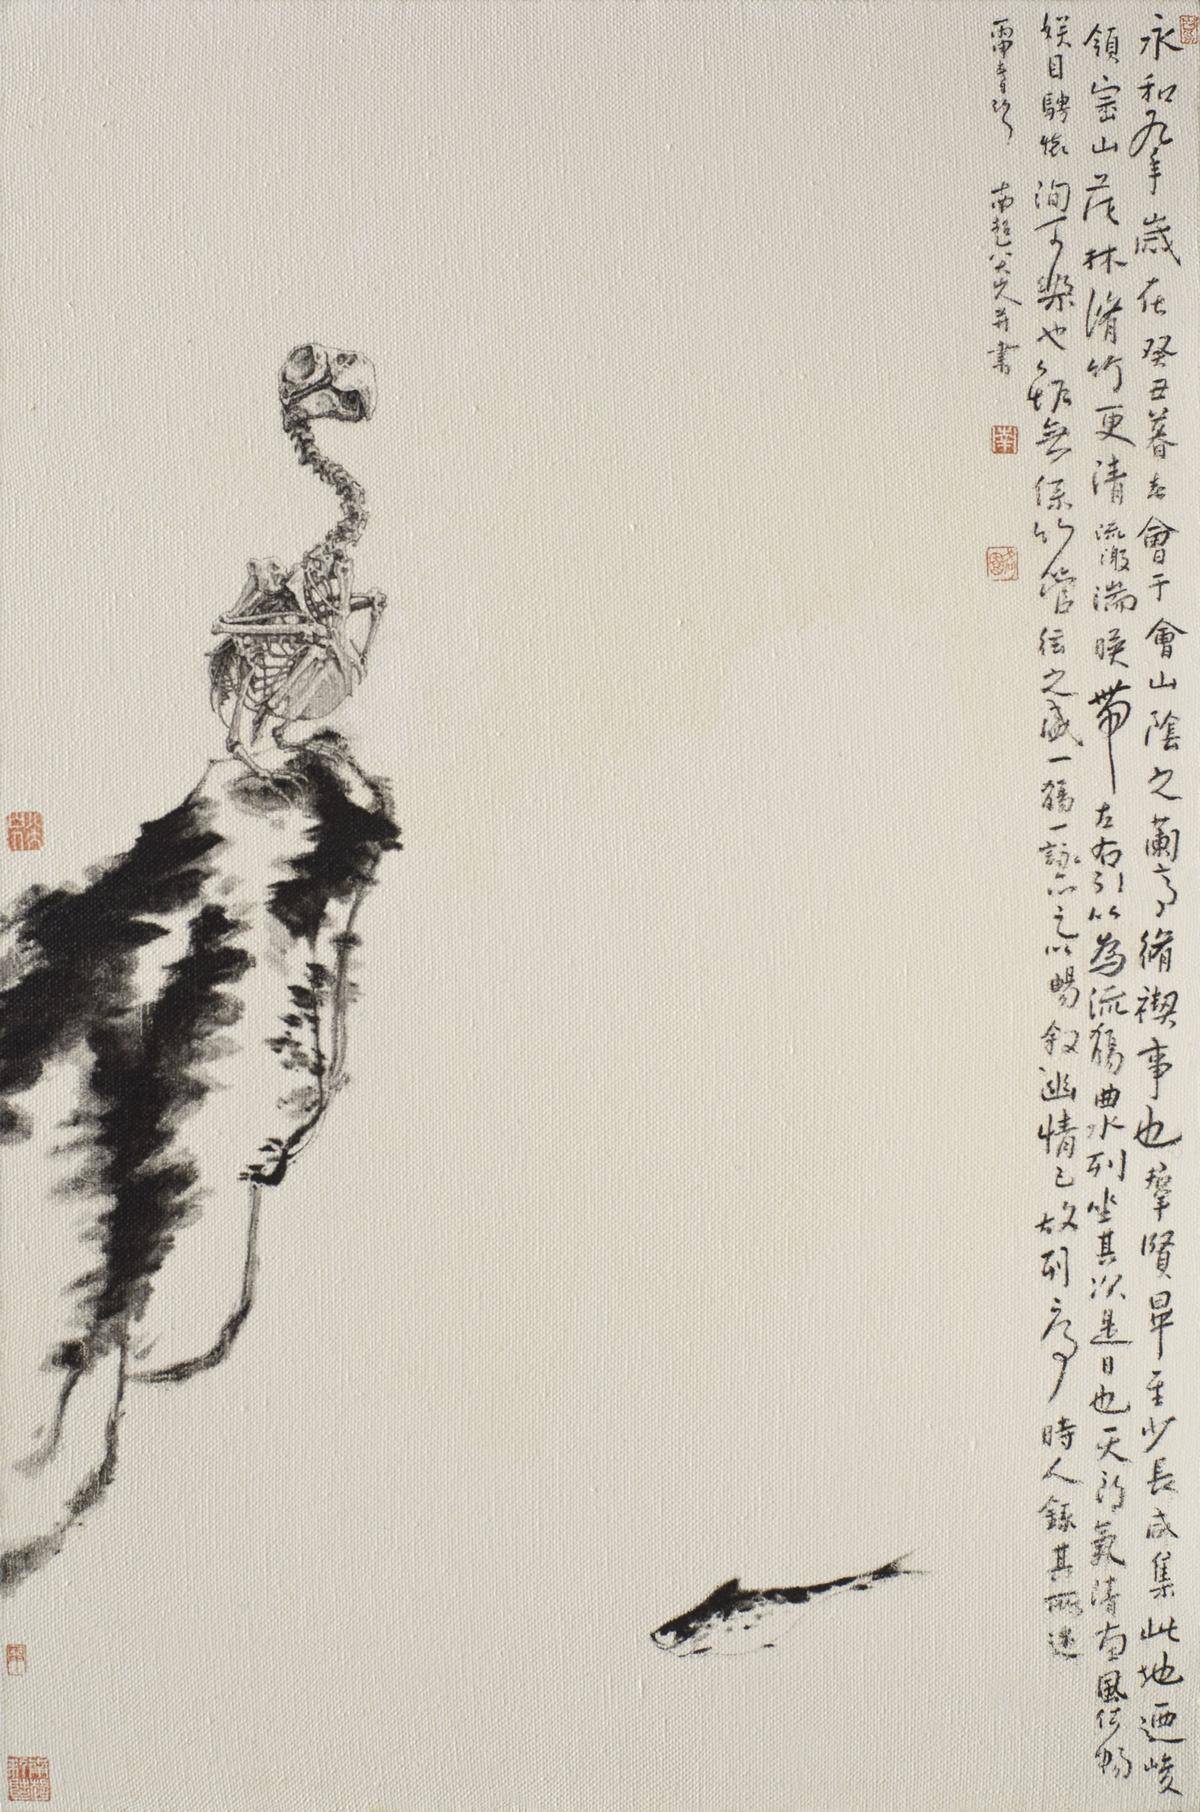 永和九年歲在癸丑暮春會于會山陰之蘭亭脩禊事也羣賢畢至少長咸集此地迺峻
領崇山茂林脩竹更清流激湍暎帶左右引以為流觴曲水列坐其次是日也天朗氣清惠風和暢
娛目騁懷洵可樂也雖無絲竹管絃之盛一觴一詠亦足以暢敘幽情已故列序時人錄其所述
八大山人并書